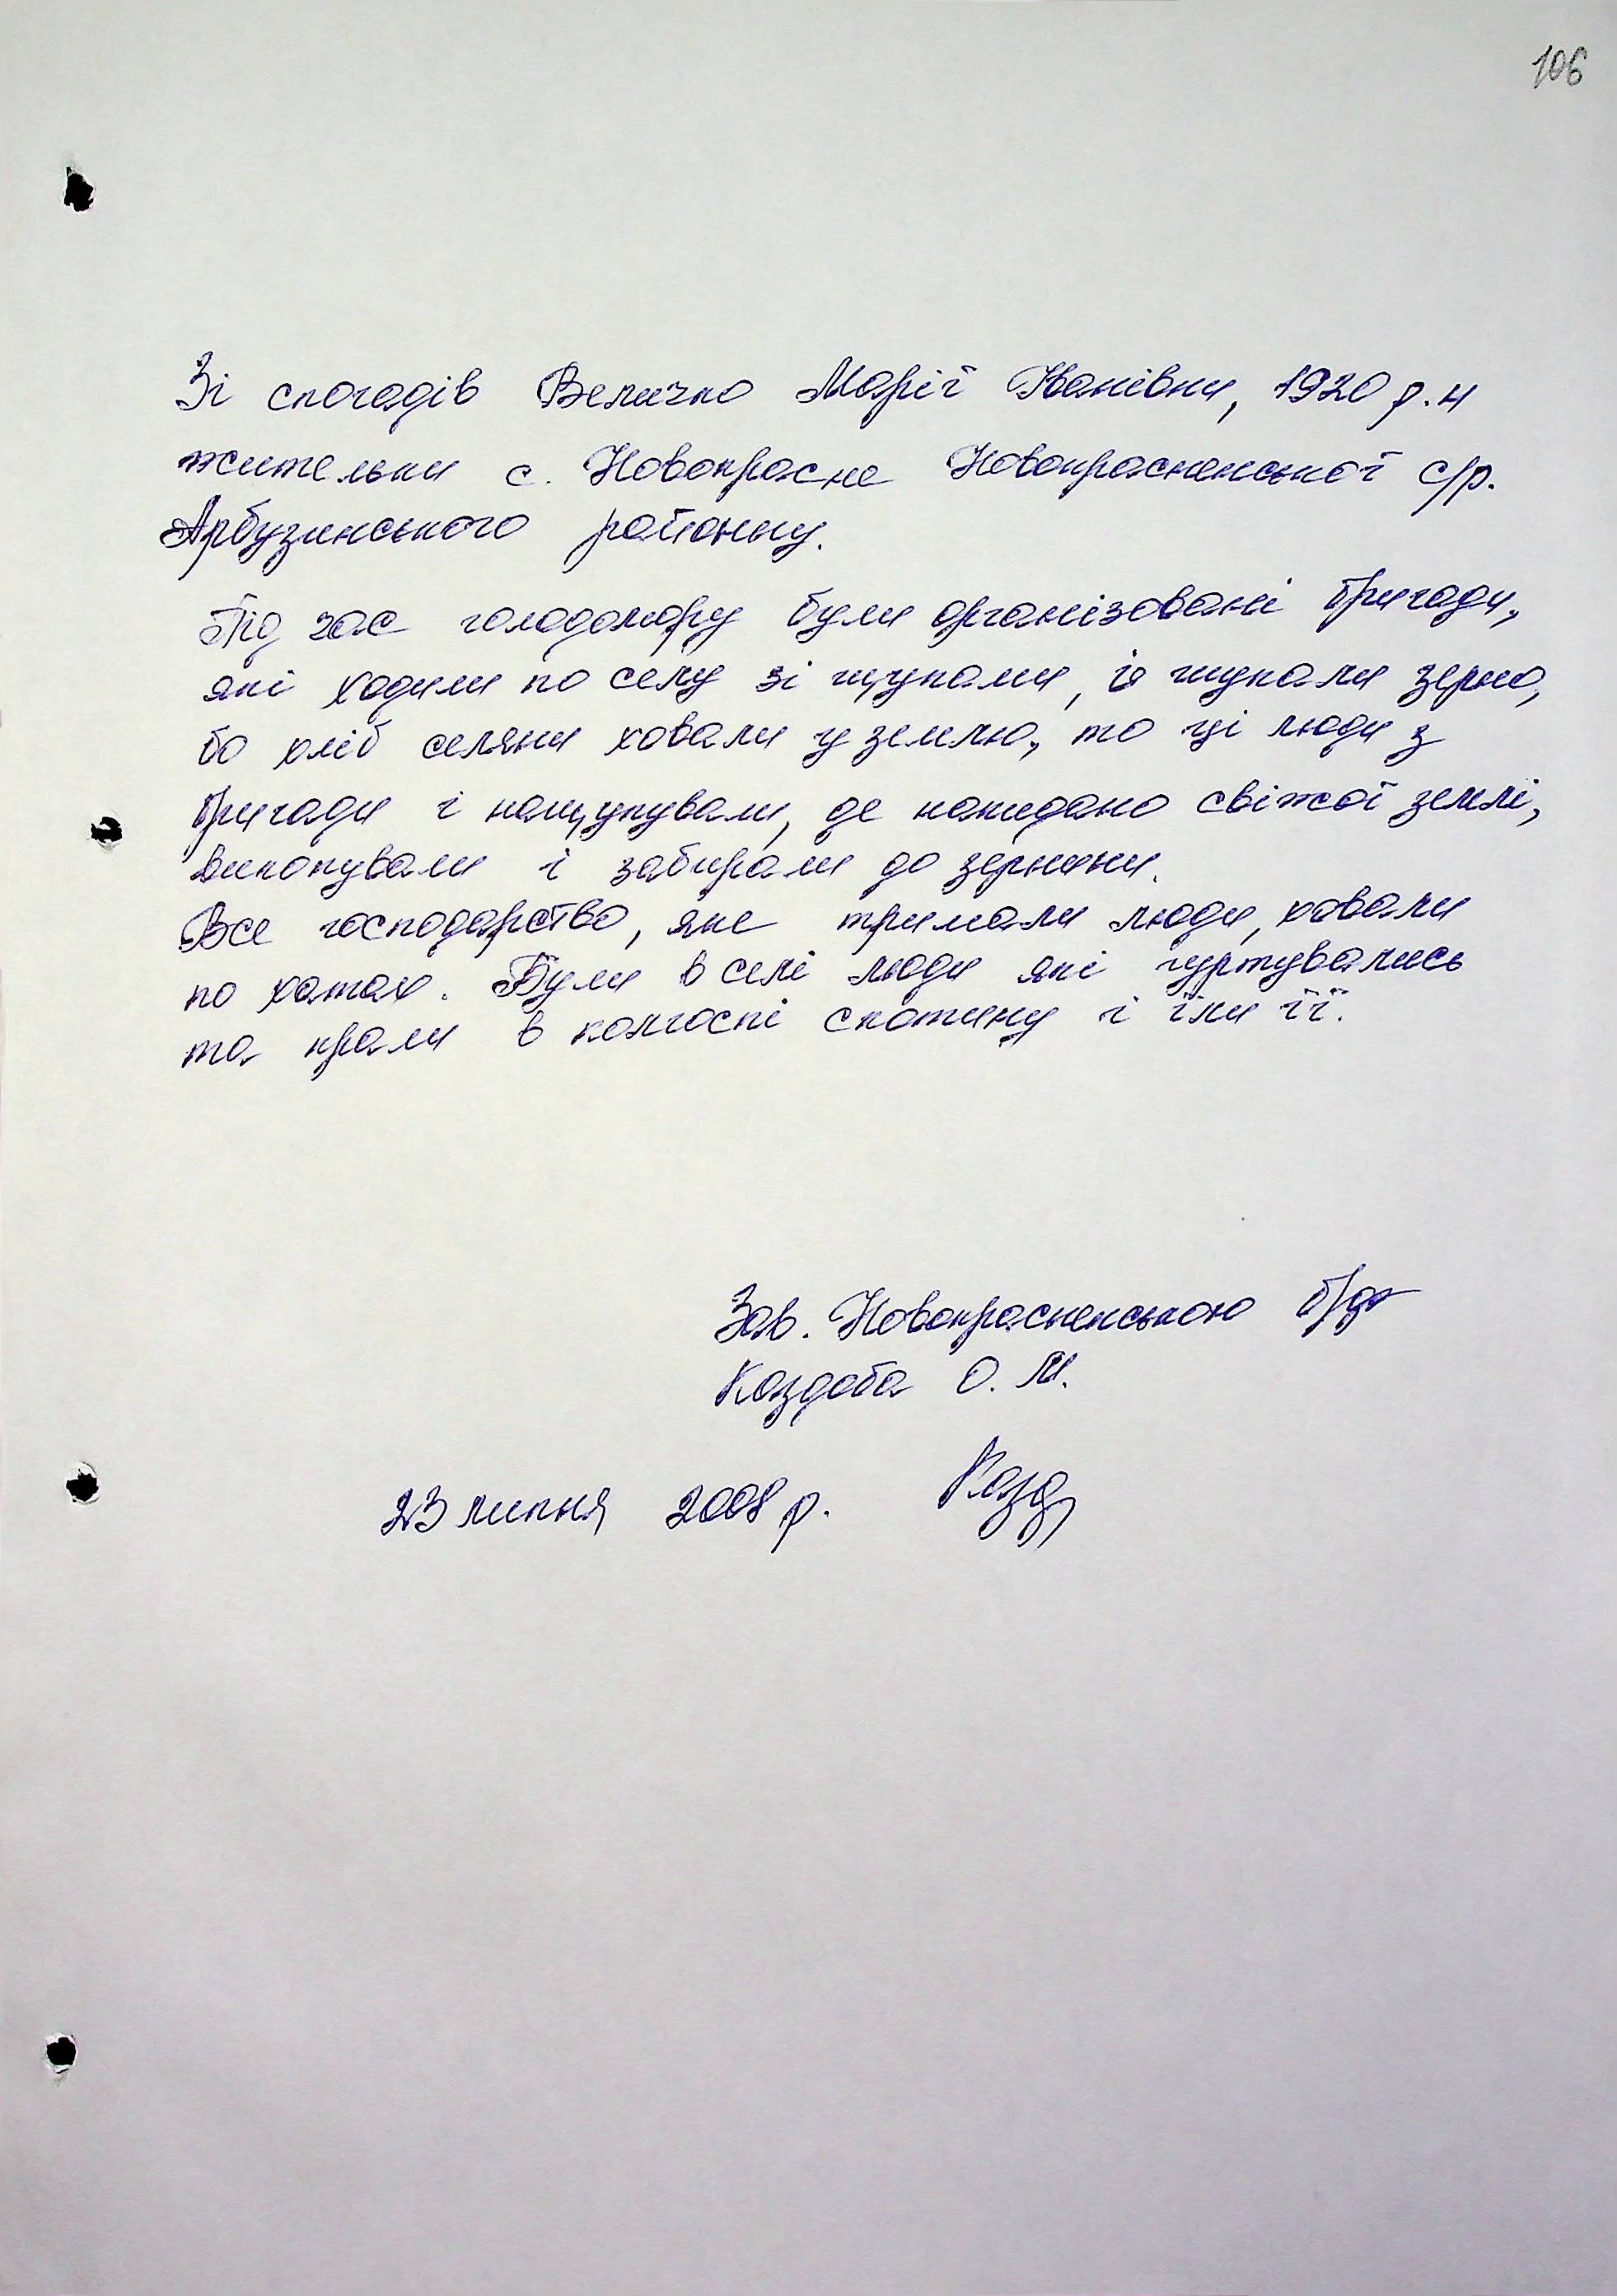 106
Зі спогадів Величко Марії Іванівни, 1920 р.н
жительки с. Новокрасне Новокрасненської с/р.
Арбузинського району.
Під час голодомору були організовані бригади,
які ходили по селу зі щупами, і шукали зерно,
бо хліб селяни ховали у землю, то ці люди з
бригади і нащупували, де накидано свіжої землі,
викопували і забирали до зернини.
Все господарство, яке тримали люди, ховали
по хатах. Були в селі люди які гуртувались
та крали в колгоспі скотину і їли її.
Зав. Новокрасненською б/ф
Каздоба О. М.
23 липня 2008 р. Казд